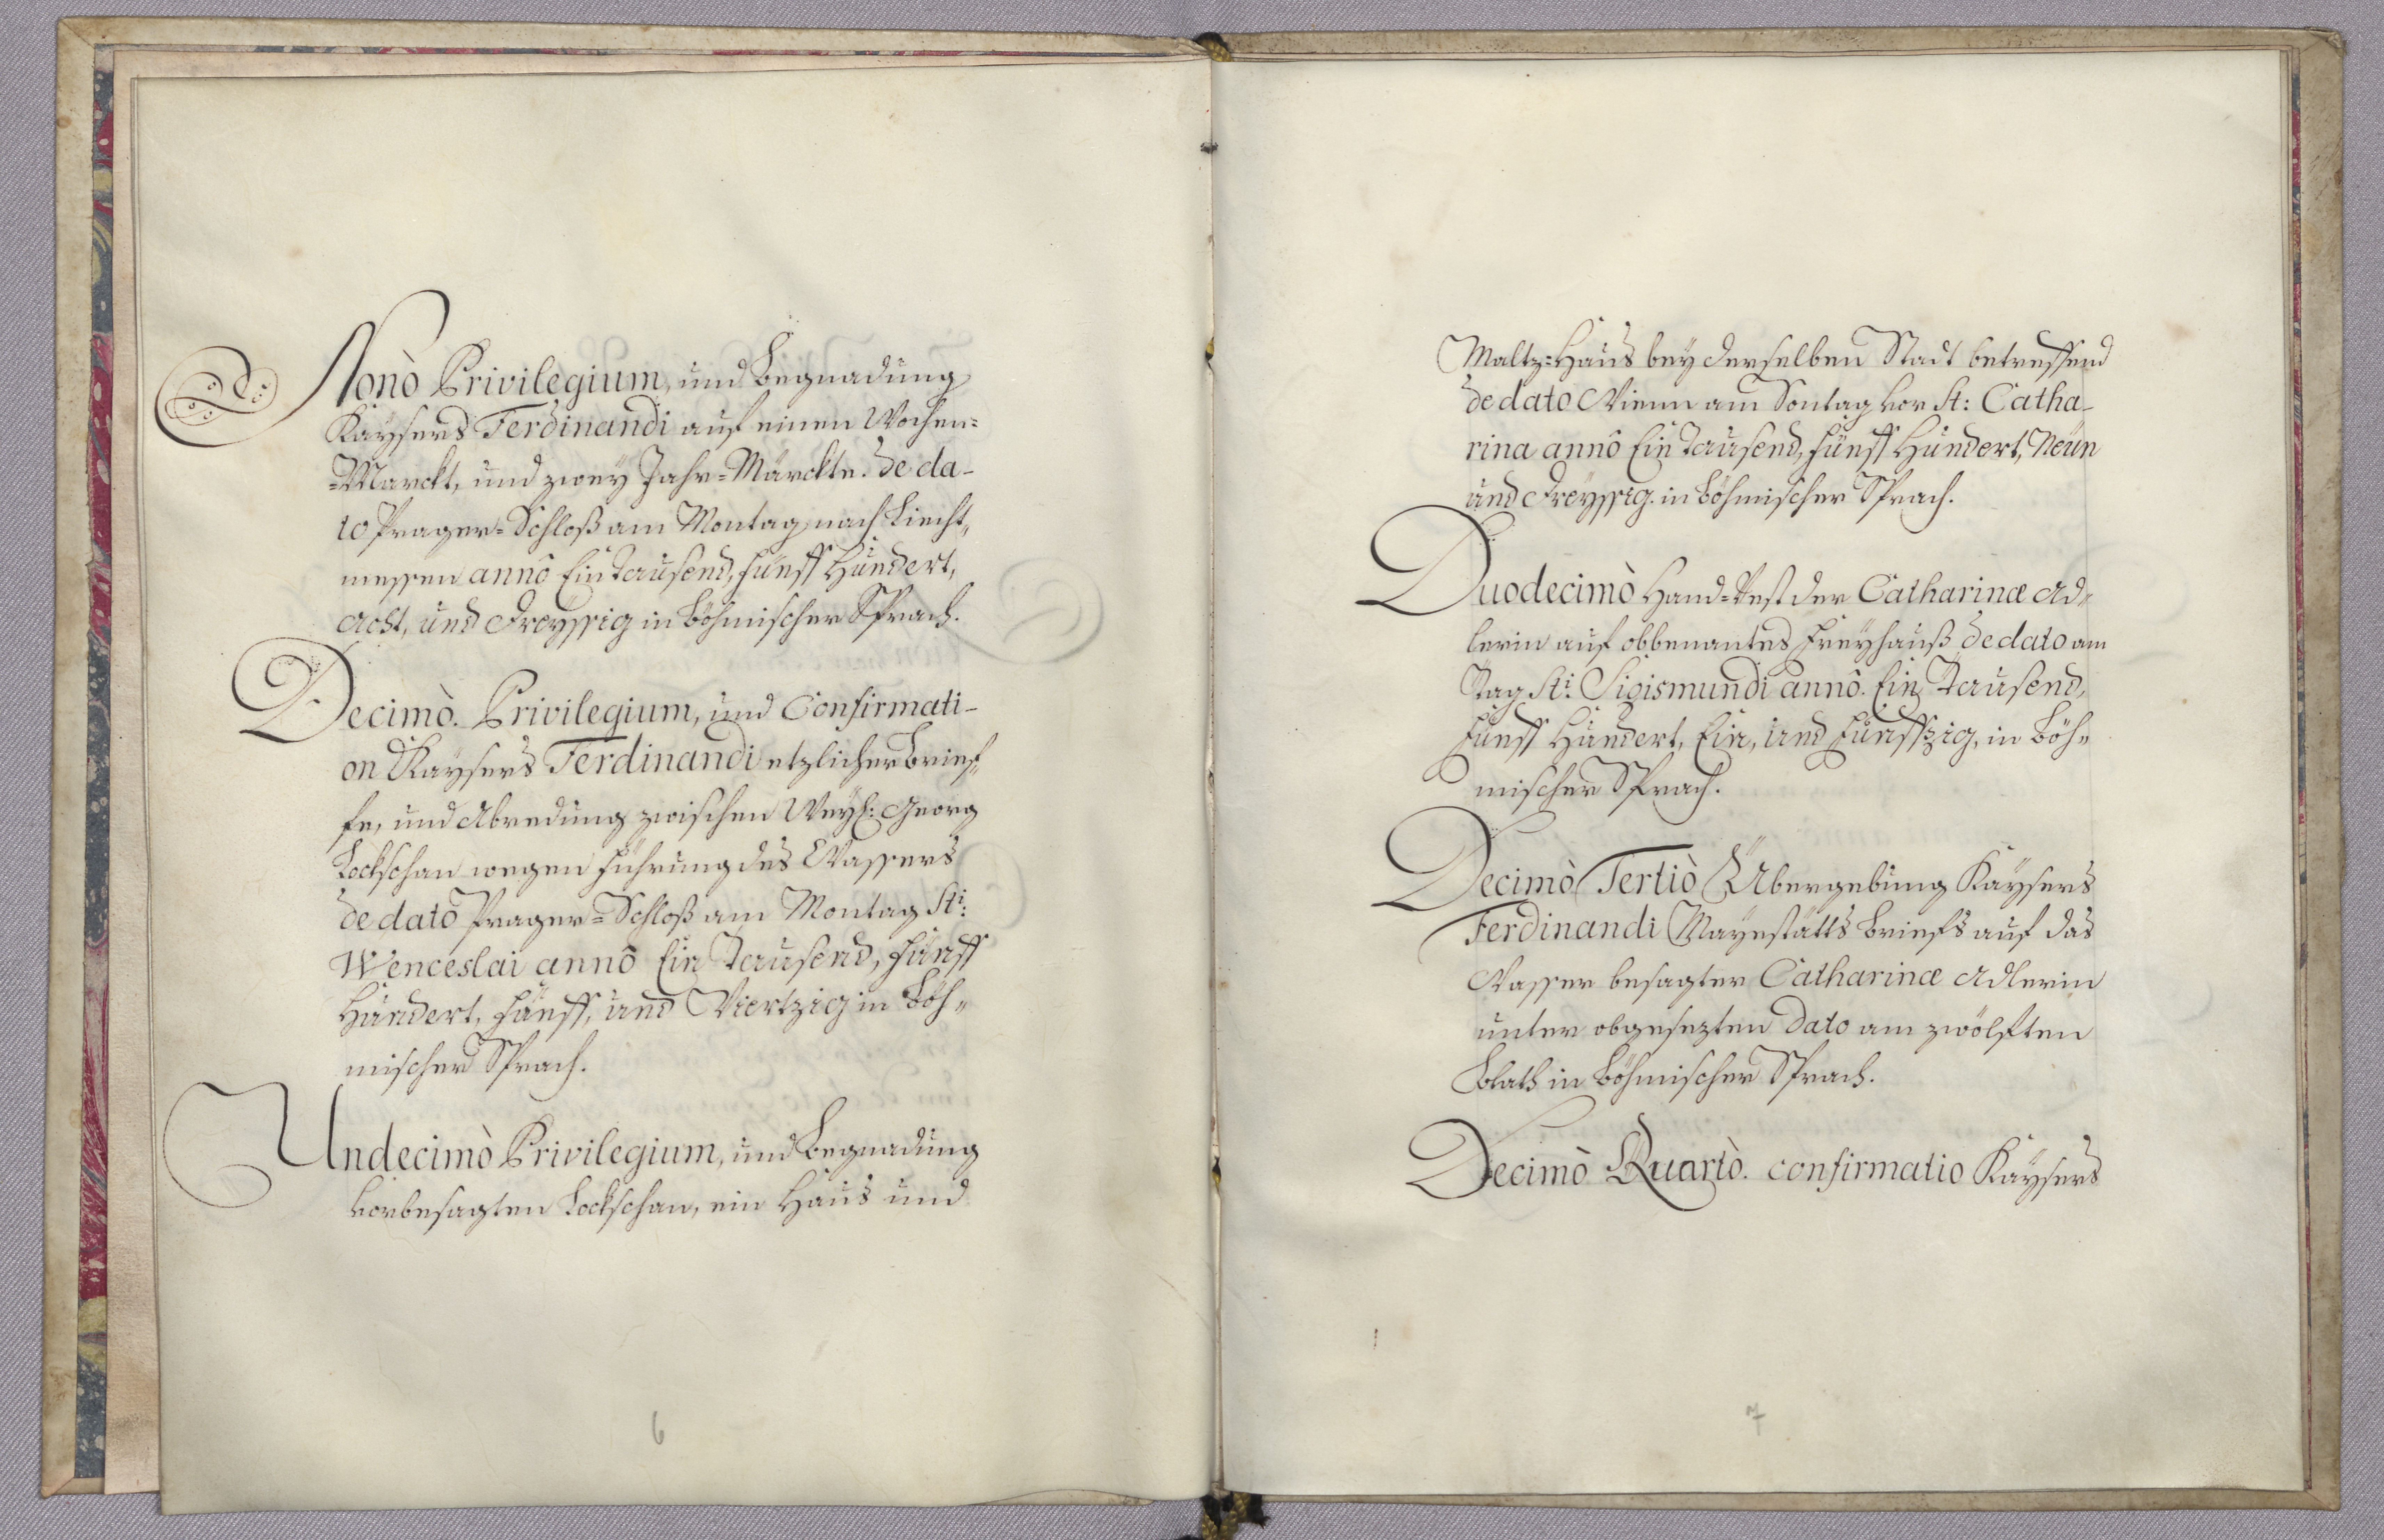 Nonò Privilegium, und Begnadung
Kaysers Ferdinandi auf einen Wochen=
=Marckt, und zwey Jahr=Märckte. De da-
to Prager=Schloß am Montag nach Liecht,,
messen annô Ein Tausend, Fünff Hundert,
Acht, und Dreyssig in Böhmischer Sprach.
Decimò. Privilegium, und Confirmati-
on Kaysers Ferdinandi etzlicher Brief,,
fe, und Abredung zwischen Weyl: Georg
Lockschan wegen Führung des Wassers
de datô Prager=Schloß am Montag Sti:
Wenceslai annô Ein Tausend, Fünff
Hundert, Fünff, und Viertzig in Böh,,
mischer Sprach.
Undecimò Privilegium, und Begnadung
vorbesagten Lockschan, ein Haus und
6
Maltz=Haus bey derselben Stadt betreffend
de dato Wienn am Sontag vor St: Catha-
rina annô Ein Tausend, Fünff Hundert, Neün
und Dreyssig. in Böhmischer Sprach.
Duodecimò Hand=Vest der Catharinæ Ad,,
lerin auf obbenantes Freyhauß de dato am
Tag Sti: Sigismundi annô. Ein Tausend,
Fünff Hundert, Ein, und Fünffzig, in Böh,,
mischer Sprach.
Decimò Tertiò Übergebung Kaysers
Ferdinandi Mayestätts Briefs auf das
Wasser besagter Catharinæ Adlerin
unter obgesezten Dato am zwölften
Blath in Böhmischer Sprach.
Decimò Quartò. confirmatio Kaysers
7